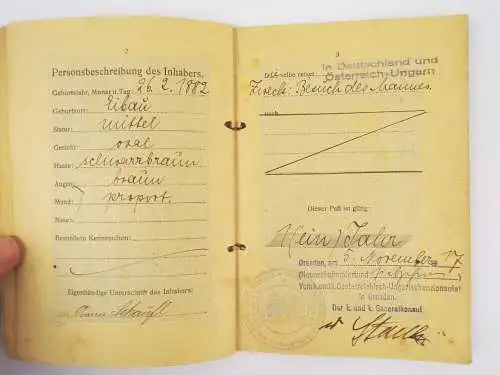 2
Personsbeschreibung des Inhabers.
Geburtsjahr, Monat u. Tag: 26. 2. 1882
Geburtsort: Eibau
Statur: mittel
Gesicht: oval
Haare: schwarzbraun
Augen: braun
Mund: proport.
Nase:
Besondere Kennzeichen:
Eigenhändige Unterschrift des Inhabers:
3
in Deutschland und
Österreich-Ungarn
Zweck: Besuch des Mannes.
nach
Dieser Paß ist gültig:
1 (ein) Jahr
Dresden, am 5. November 17
Vom k. und k. Oesterreichisch-Ungarischen Konsulate
in Dresden.
Der k. und k. Generalkonsul